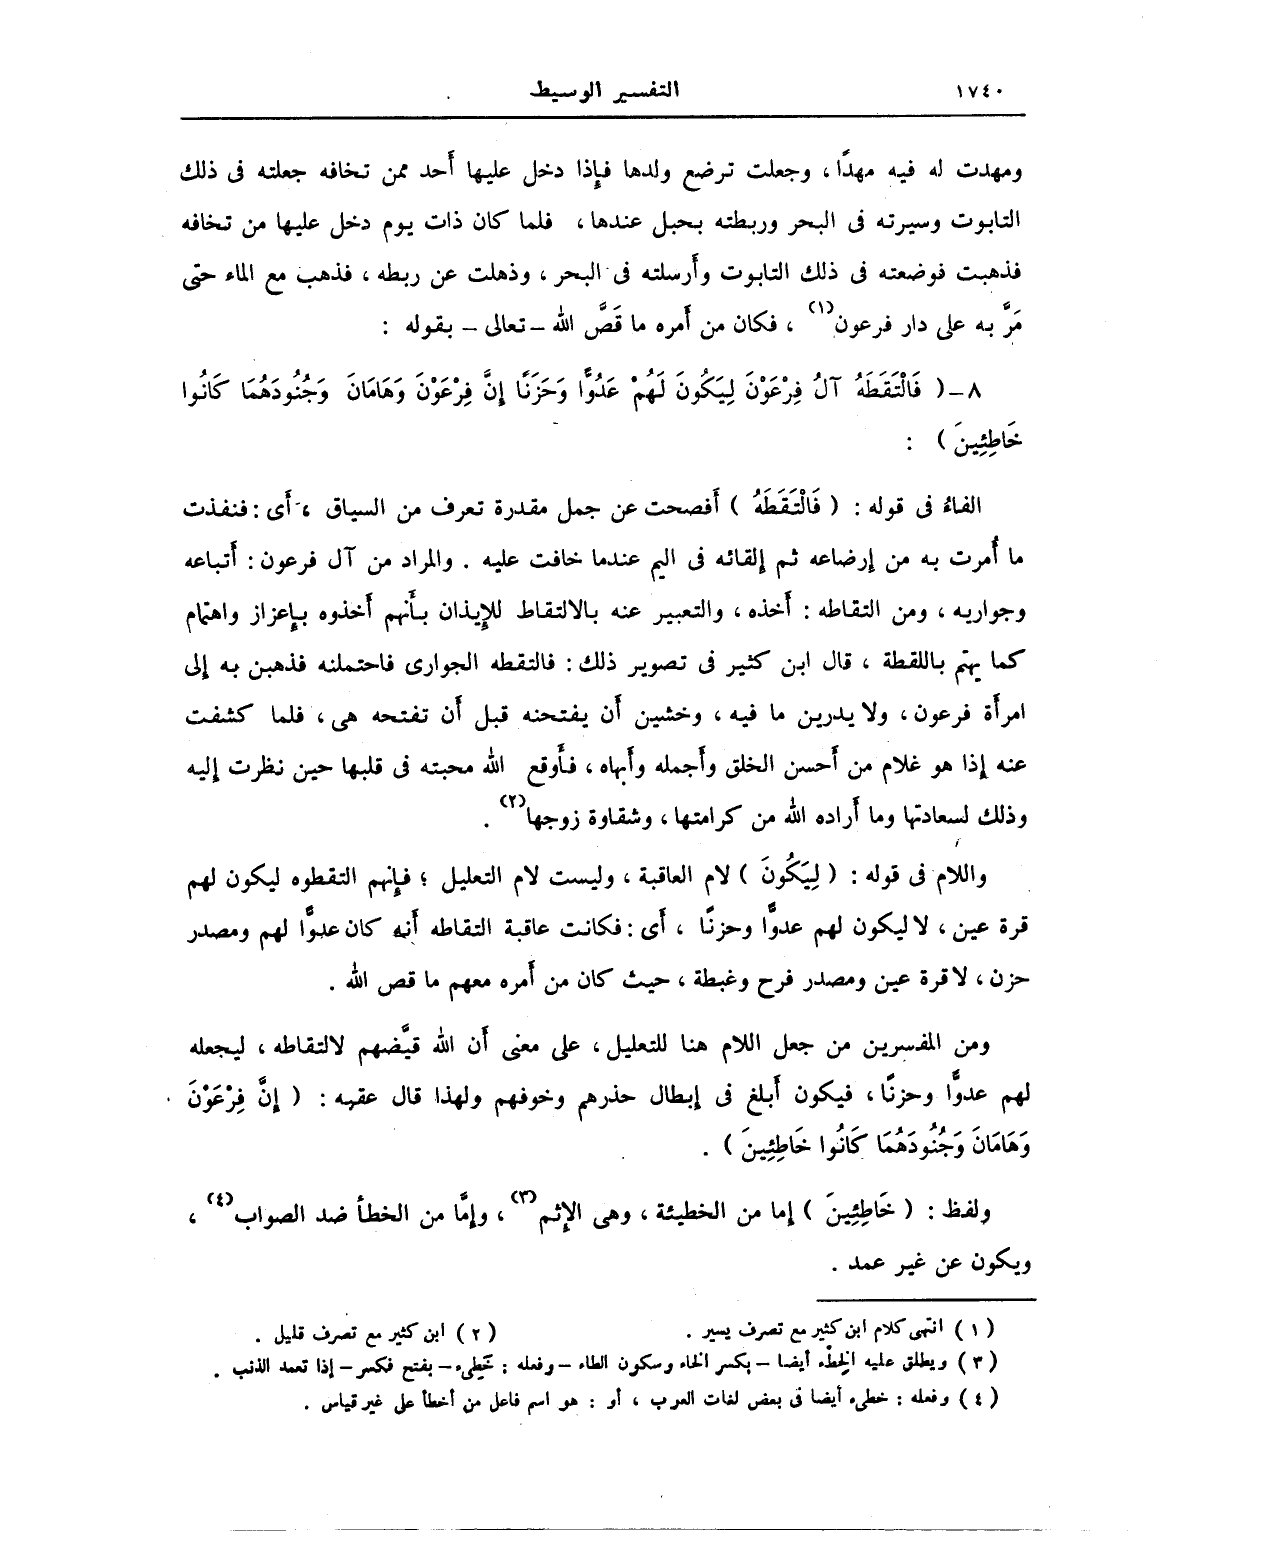 ١٧٤٠ التفسير الوسيط
ومهدت له فيه مهدًا ، وجعلت ترضع ولدها فإذا دخل عليها أحد ممن تخافه جعلته فى ذلك
التابوت وسيرته فى البحر وربطته بحبل عندها ، فلما كان ذات يوم دخل عليها من تخافه
فذهبت فوضعته فى ذلك التابوت وأرسلته فى البحر ، وذهلت عن ربطه ، فذهب مع الماء حتى
مَرَّ به على دار فرعون(١) ، فكان من أمره ما قَصَّ الله – تعالى – بقوله :
٨ – ( فَالْتَقَطَهُ آلُ فِرْعَوْنَ لِيَكُونَ لَهُمْ عَدُوًّا وَحَزَنًا إِنَّ فِرْعَوْنَ وَهَامَانَ وَجُنُودَهُمَا كَانُوا
خَاطِئِينَ ) :
الفاءُ فى قوله : ( فَالْتَقَطَهُ ) أفصحت عن جمل مقدرة تعرف من السياق ، أى : فنفذت
ما أُمرت به من إرضاعه ثم إلقائه فى اليم عندما خافت عليه . والمراد من آل فرعون : أتباعه
وجواريه ، ومن التقاطه : أخذه ، والتعبير عنه بالالتقاط للإيذان بأنهم أخذوه بإعزاز واهتمام
كما يهتم باللقطة ، قال ابن كثير فى تصوير ذلك : فالتقطه الجوارى فاحتملنه فذهبن به إلى
امرأة فرعون ، ولا يدرين ما فيه ، وخشين أن يفتحنه قبل أن تفتحه هى ، فلما كشفت
عنه إذا هو غلام من أحسن الخلق وأجمله وأبهاه ، فأوقع الله محبته فى قلبها حين نظرت إليه
وذلك لسعادتها وما أراده الله من كرامتها ، وشقاوة زوجها(٢) .
واللام فى قوله : ( لِيَكُونَ ) لام العاقبة ، وليست لام التعليل ؛ فإنهم التقطوه ليكون لهم
قرة عين ، لا ليكون لهم عدوًّا وحزنًا ، أى : فكانت عاقبة التقاطه أنه كان عدوًّا لهم ومصدر
حزن ، لا قرة عين ومصدر فرح وغبطة ، حيث كان من أمره معهم ما قص الله .
ومن المفسرين من جعل اللام هنا للتعليل ، على معنى أن الله قيَّضهم لالتقاطه ، ليجعله
لهم عدوًّا وحزنًا ، فيكون أبلغ فى إبطال حذرهم وخوفهم ولهذا قال عقبه : ( إِنَّ فِرْعَوْنَ
وَهَامَانَ وَجُنُودَهُمَا كَانُوا خَاطِئِينَ ) .
ولفظ : ( خَاطِئِينَ ) إما من الخطيئة ، وهى الإثم(٣) ، وإمَّا من الخطأ ضد الصواب(٤) ،
ويكون عن غير عمد .
( ١ ) انتهى كلام ابن كثير مع تصرف يسير . ( ٢ ) ابن كثير مع تصرف قليل .
( ٣ ) ويطلق عليه الخِطْء أيضا – بكسر الخاء وسكون الطاء – وفعله : خَطِىء – بفتح فكسر – إذا تعمد الذنب .
( ٤ ) وفعله : خطىء أيضا فى بعض لغات العرب ، أو : هو اسم فاعل من أخطأ على غير قياس .